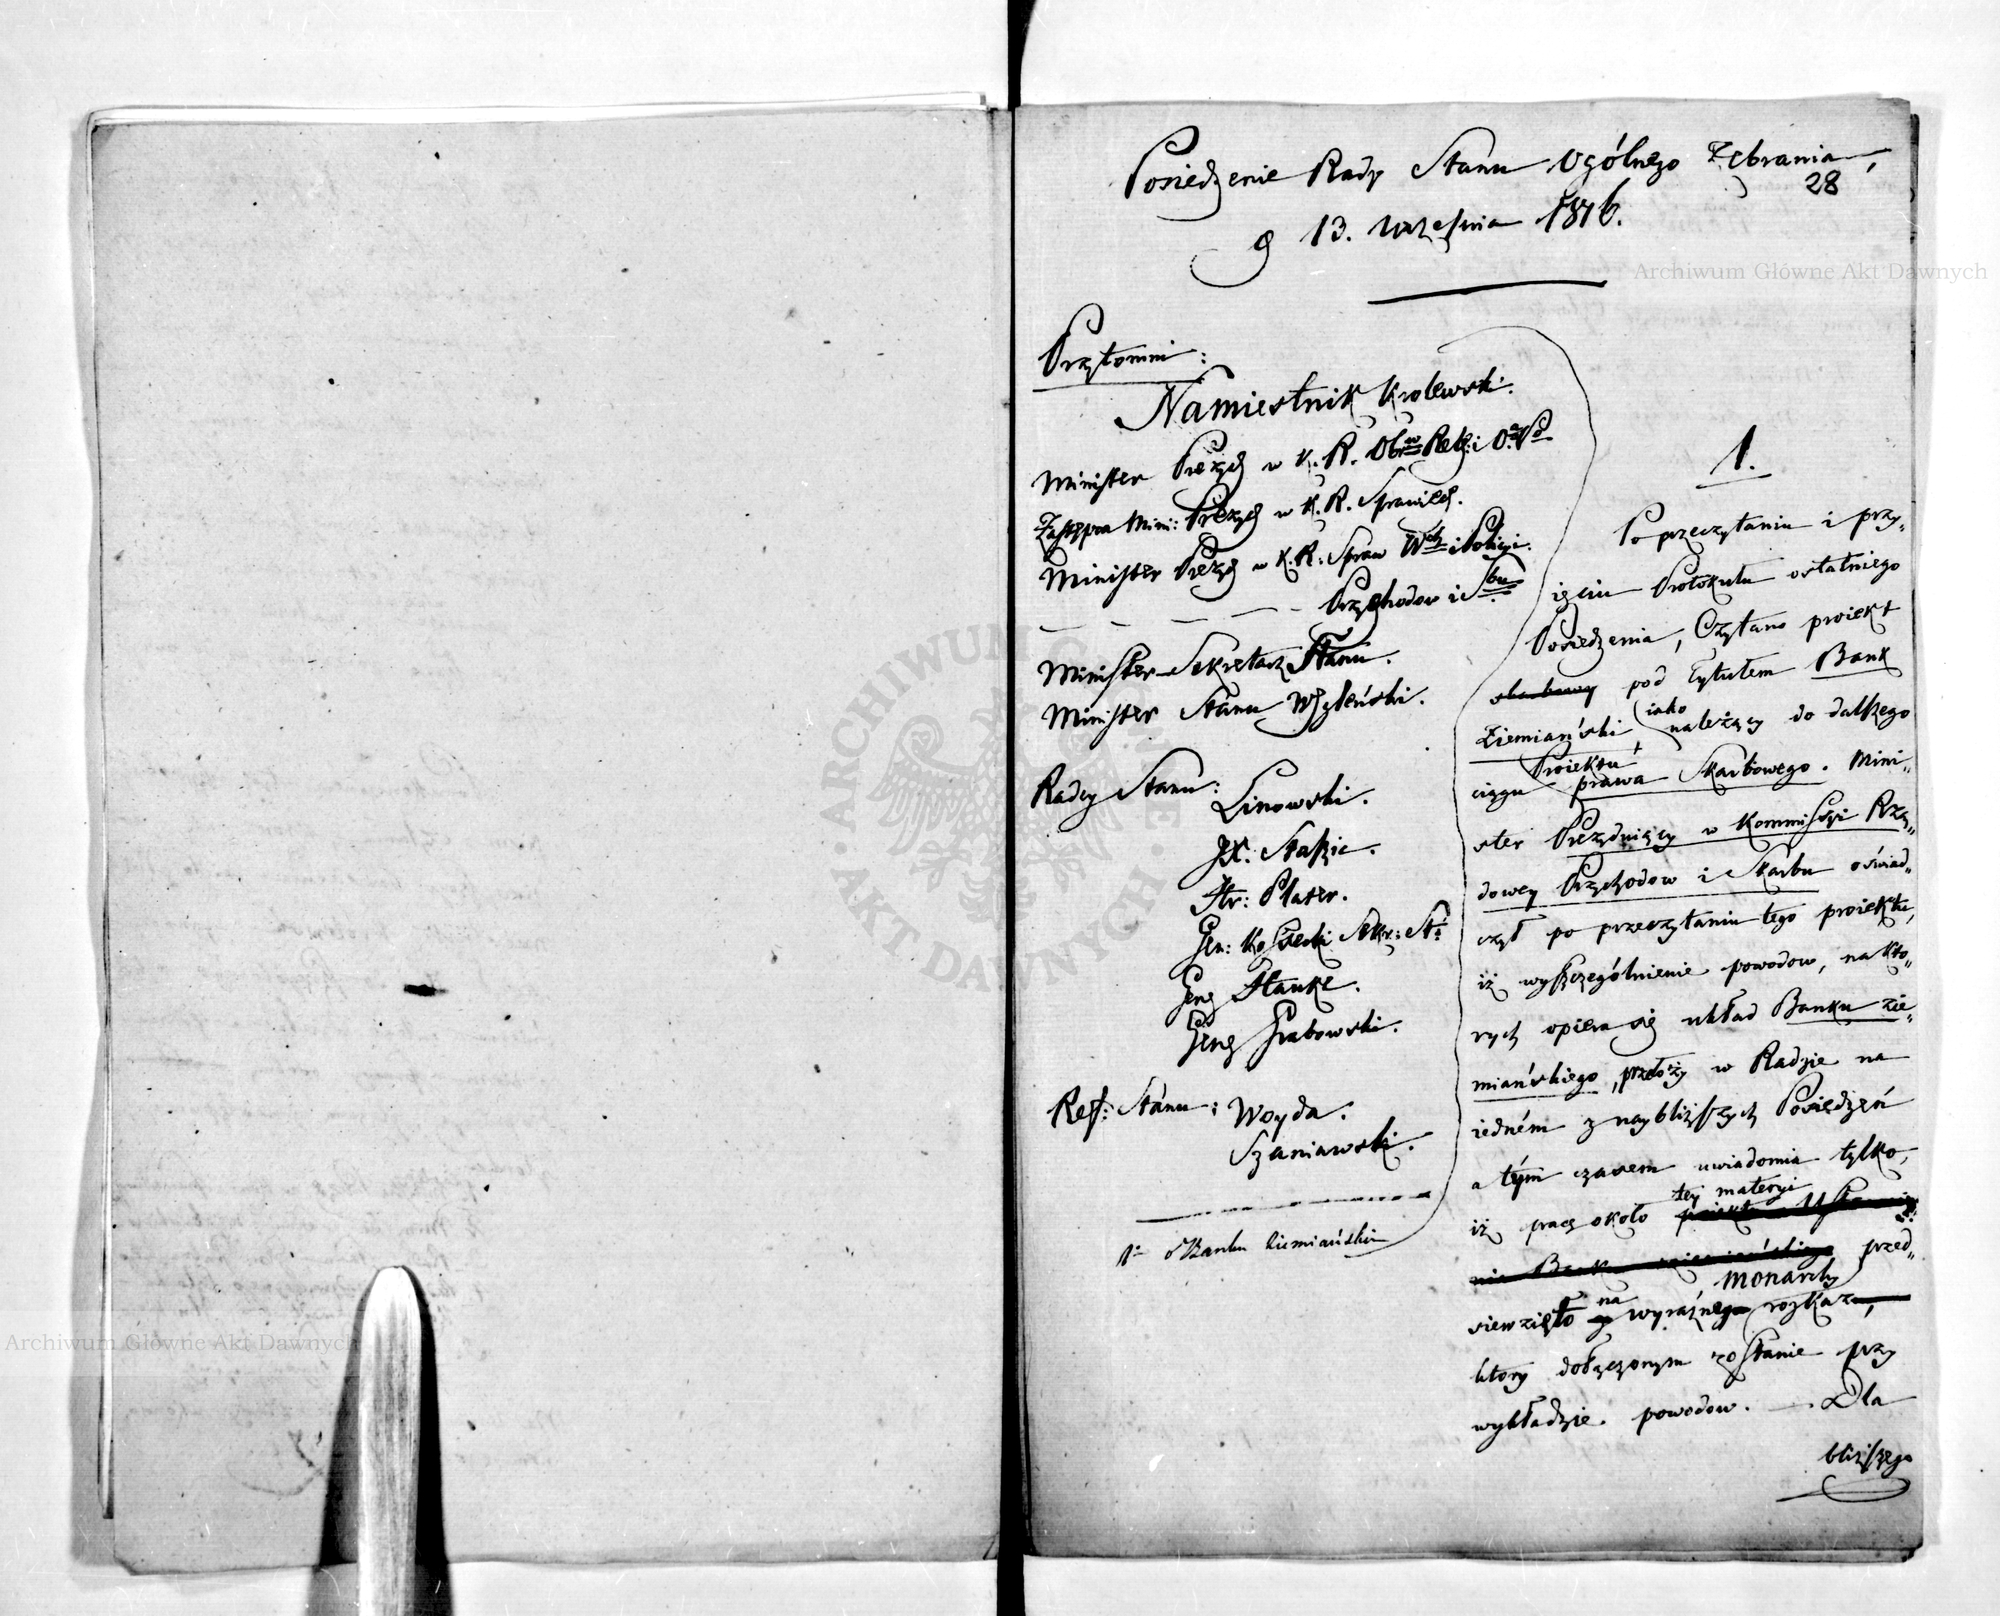 Posiedzenie Rady Stanu Ogólnego Zebrania,
28
d 13. Września 1816.
Przytomni:
Namiestnik Krolewski.
Minister Prezyd w K. R. Obrw Relig: i O. P.
Zastępca Mini: Prezyd w K. R. Sprawied.
Minister Prezyd w K. R: Spraw Weh i Policyi.
— — — — Przychodow i Sbu
Minister Sekretarz Stanu.
Minister Stanu Wyleński.
Radcy Stanu:
Linowski.
JX: Staszic.
Hr: Plater.
Gen: Kossecki Sekr: St:
Gen Hauke.
Gen Grabowski.
Ref: Stanu: Woyda.
Szaniawski.
1o o Banku Ziemiańskim
1.
Po przeczytaniu i przy„
ięciu Protokułu ostatniego
Posiedzenia, Czytano proiekt
skarbowy pod tytułem Bank
Ziemiański iako należący do dalszego
ciągu Proiektu prawa Skarbowego. Mini„
ster Prezyduiący w Kommissyi Rzą„
dowey Przychodow i Skarbu oświad„
czył po przeczytaniu tego proiektu,
iż wyszczególnienie powodow, na któ„
rych opiera się układ Banku zie„
miańskiego, przełoży w Radzie na
iedném z naybliższych Posiedzeń
a tym czasem uwiadomia tylko,
iż pracę około tey materyi
przed„
siewzięto na wyraźnego rozkaz Monarchy,
ktory dołączonym zostanie przy
wykładzie powodow. — Dla
bliższego